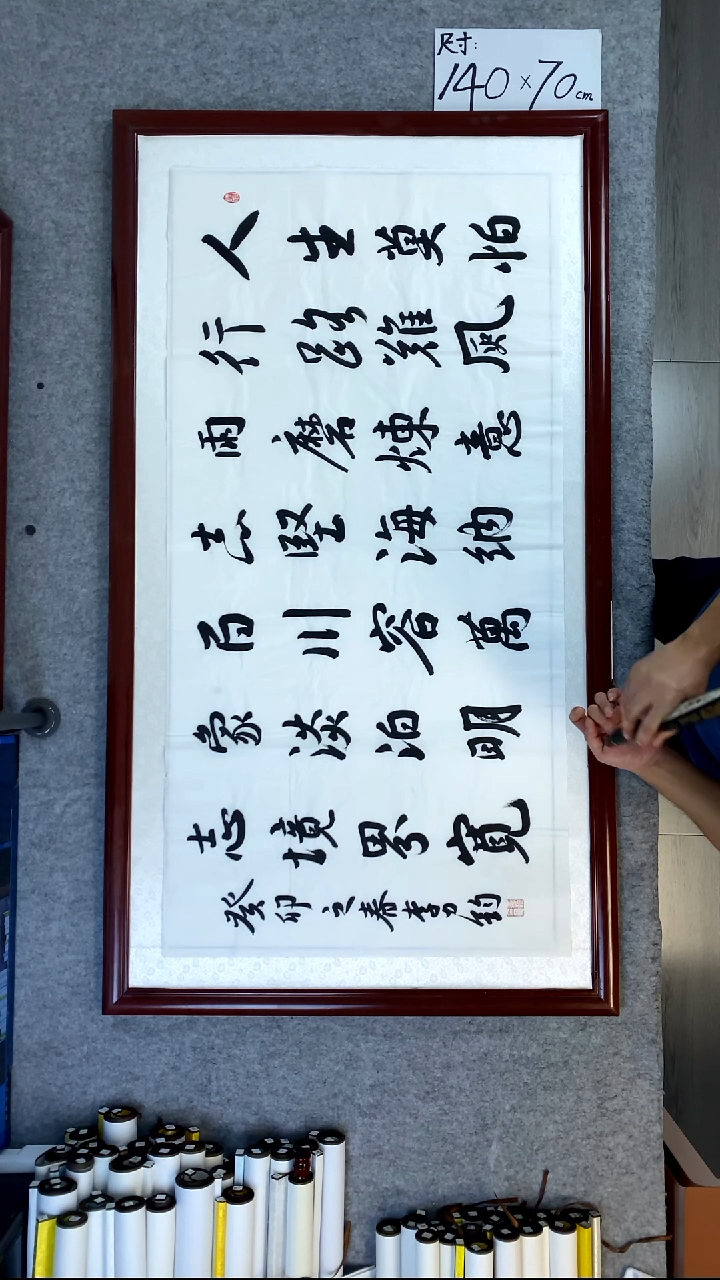 尺寸:
140×70cm
人生莫怕
行路難風
雨磨煉意
志堅海納
百川容萬
象淡泊明
志境界寬
癸卯之春李力鈞